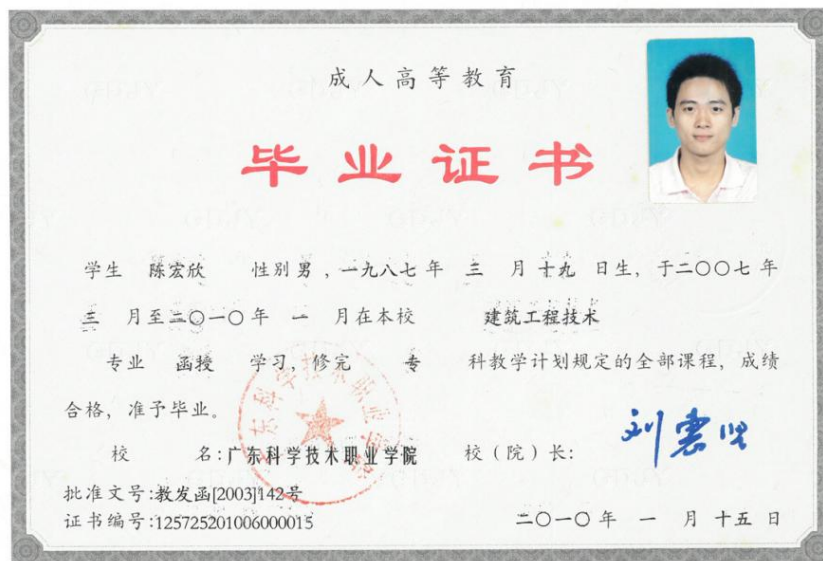 成人高等教育
毕业证书
学生 陈宏欣 性别男,一九八七年 三 月十九 日生,于二〇〇七年
三 月至二〇一〇年 一 月在本校 建筑工程技术
专业 函授 学习,修完 专 科教学计划规定的全部课程,成绩
合格,准予毕业。
校 名:广东科学技术职业学院 校(院)长:
批准文号:教发函[2003]142号
证书编号:125725201006000015 二〇一〇年 一 月十五日